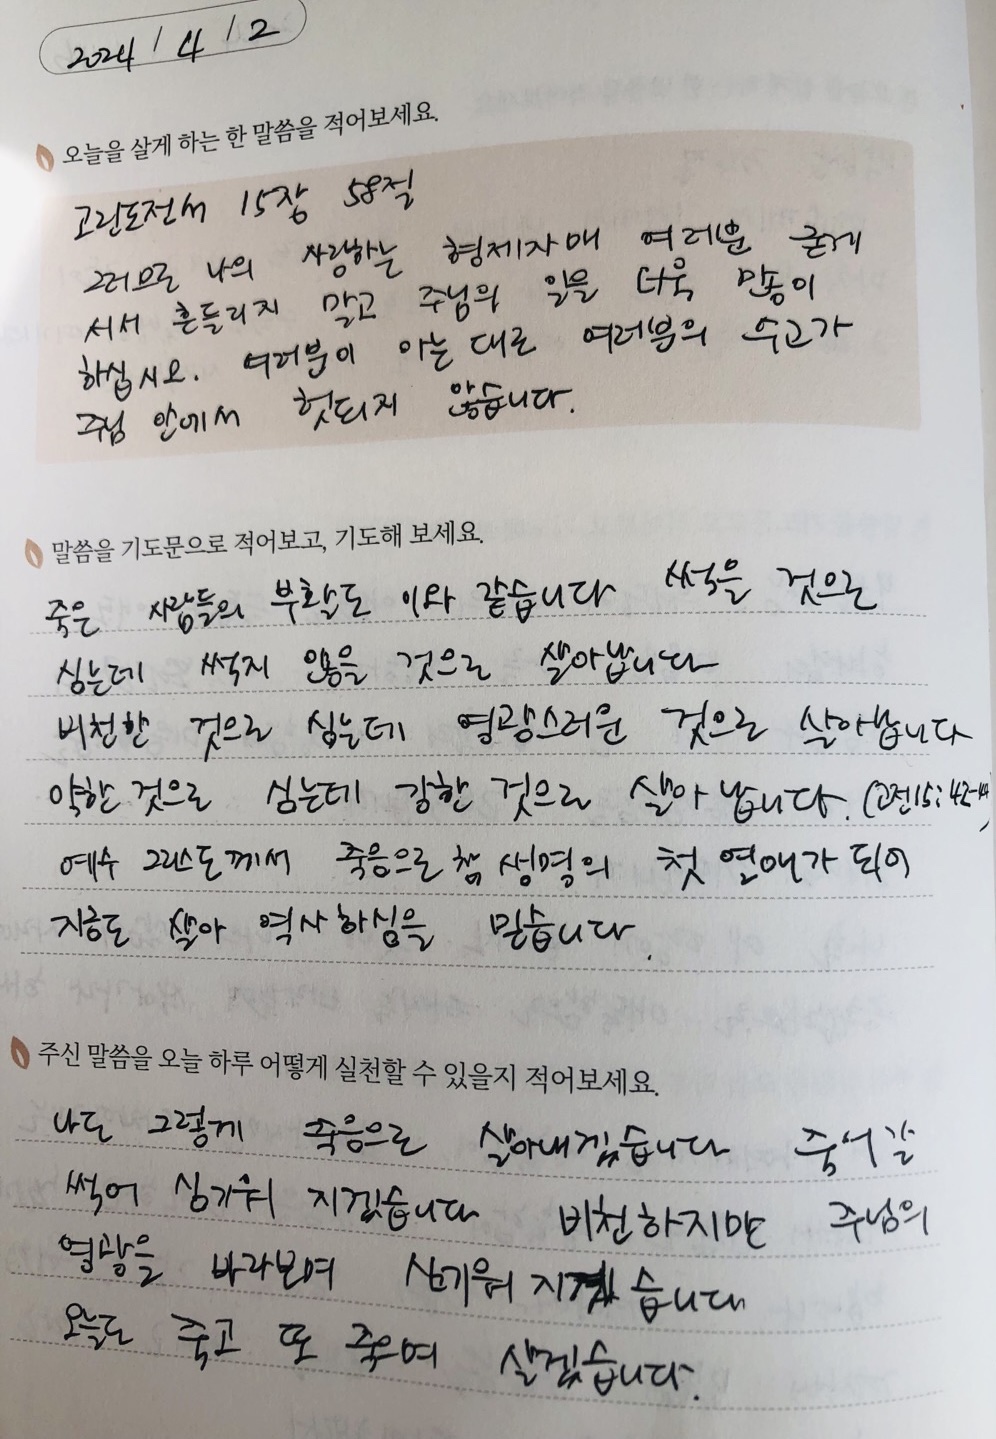 2024 / 4 / 2
오늘을 살게 하는 한 말씀을 적어보세요.
고린도전서 15장 58절
그러므로 나의 사랑하는 형제자매 여러분 굳게
서서 흔들리지 말고 주님의 일을 더욱 많이
하십시오. 여러분이 아는 대로 여러분의 수고가
주님 안에서 헛되지 않습니다.
말씀을 기도문으로 적어보고, 기도해 보세요.
죽은 사람들의 부활도 이와 같습니다 썩을 것으로
심는데 썩지 않을 것으로 살아납니다
비천한 것으로 심는데 영광스러운 것으로 살아납니다
약한 것으로 심는데 강한 것으로 살아 납니다. (고전15:42-44)
예수 그리스도께서 죽음으로 참 생명의 첫 열매가 되어
지금도 살아 역사하심을 믿습니다.
주신 말씀을 오늘 하루 어떻게 실천할 수 있을지 적어보세요.
나도 그렇게 죽음으로 살아내겠습니다
썩어 심기워 지겠습니다 비천하지만 주님의
영광을 바라보며 심기워 지겠습니다
오늘도 죽고 또 죽어 살겠습니다.